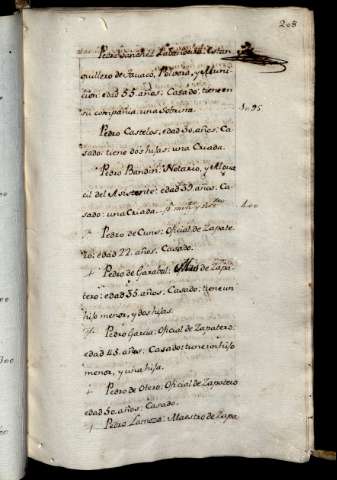 208
Pedro Sanchez Estan
quillero de Tavaco, Polvora, y Muni
cion: edad 55 años. Casado: tiene en
su compañia una Sobrina.
Pedro Castelos, edad 50 años: Ca
sado: tiene dos hijas: una Criada.
Pedro Bandin: Notario, y Algua
cil del Asistente: edad 39 años: Ca
sado: una Criada.
Pedro de Cunς: Oficial de Zapate
ro: edad 22. años. Casado.
+ Pedro de Garabal: de Zapa
tero: edad 35. años. Casado: tiene un
hijo menor, y dos hijas.
+ Pedro Garcia: Oficial de Zapatero:
edad 45. años. Casado: tiene un hijo
menor, y una hija.
+ Pedro de Otero: Oficial de Zapatero
edad 50. años: Casado.
+ Pedro Lamoza: Maestro de Zapa